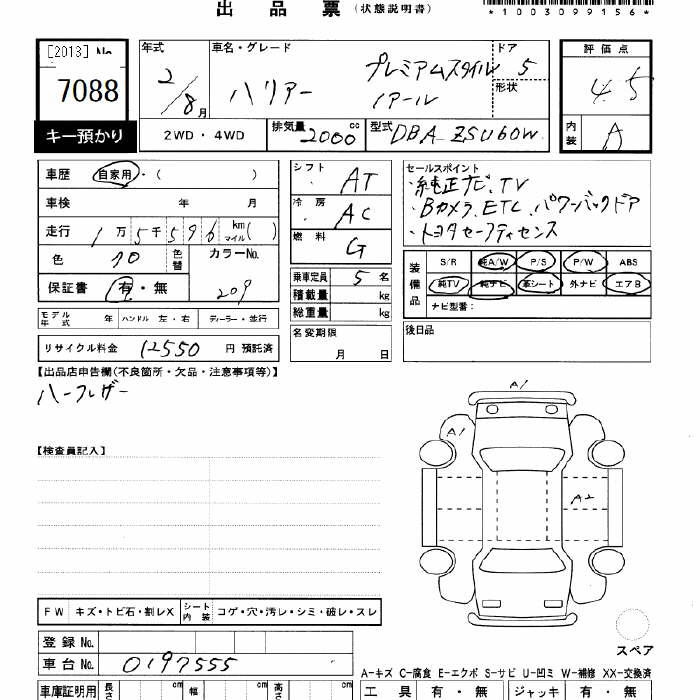 出品票（状態説明書）
*1003099156*
[2013] No.
7088
キー預かり
年式
2/8月
車名・グレード
ハリアー
プレミアムスタイル
ノアール
ドア
5
形状
評価点
4.5
内装
A
2WD・4WD
排気量 2000 cc
型式 DBA ZSU60W
車歴 自家用・( )
車検 年 月
走行 1万5千596 km マイル( )
色 色替 カラーNo.
209
保証書 有・無
シフト AT
冷房 AC
燃料 G
乗車定員 5 名
積載量 kg
総重量 kg
セールスポイント
・純正ナビ、TV
・Bカメラ、ETC、パワーバックドア
・トヨタセーフティセンス
装備品
S/R 純A/W P/S P/W ABS
純TV 純ナビ 革シート 外ナビ エアB
ナビ型番：
モデル年式 年 ハンドル 左・右 ディーラー・並行
名変期限
月 日
後日品
リサイクル料金 12550 円 預託済
【出品店申告欄(不良箇所・欠品・注意事項等)】
ハーフレザー
A1
A1
A2
【検査員記入】
FW キズ・トビ石・割レX シート内装 コゲ・穴・汚レ・シミ・破レ・スレ
スペア
登録 No.
車台 No. 0197555
A-キズ C-腐食 E-エクボ S-サビ U-凹ミ W-補修 XX-交換済
車庫証明用 長さ cm 幅 cm 高さ cm
工具 有・無 ジャッキ 有・無